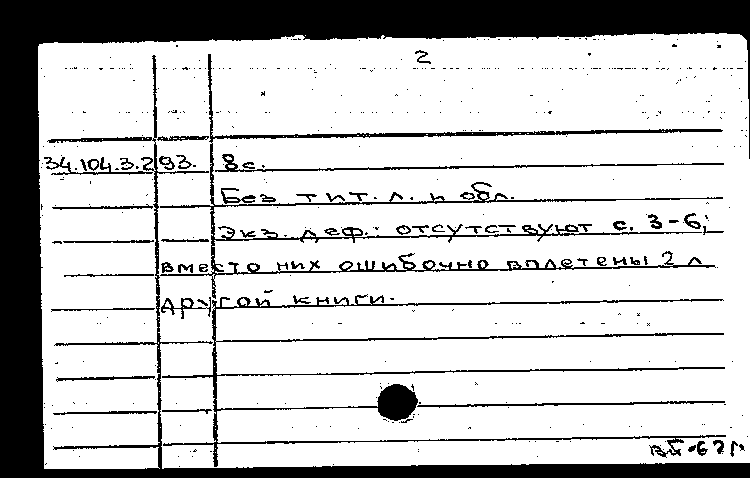 2
34.104.3.293. 8с.
Без тит. л. и обл.
Экз. деф.: отсутствуют с. 3-6;
вместо них ошибочно вплетены 2 л
другой книги.